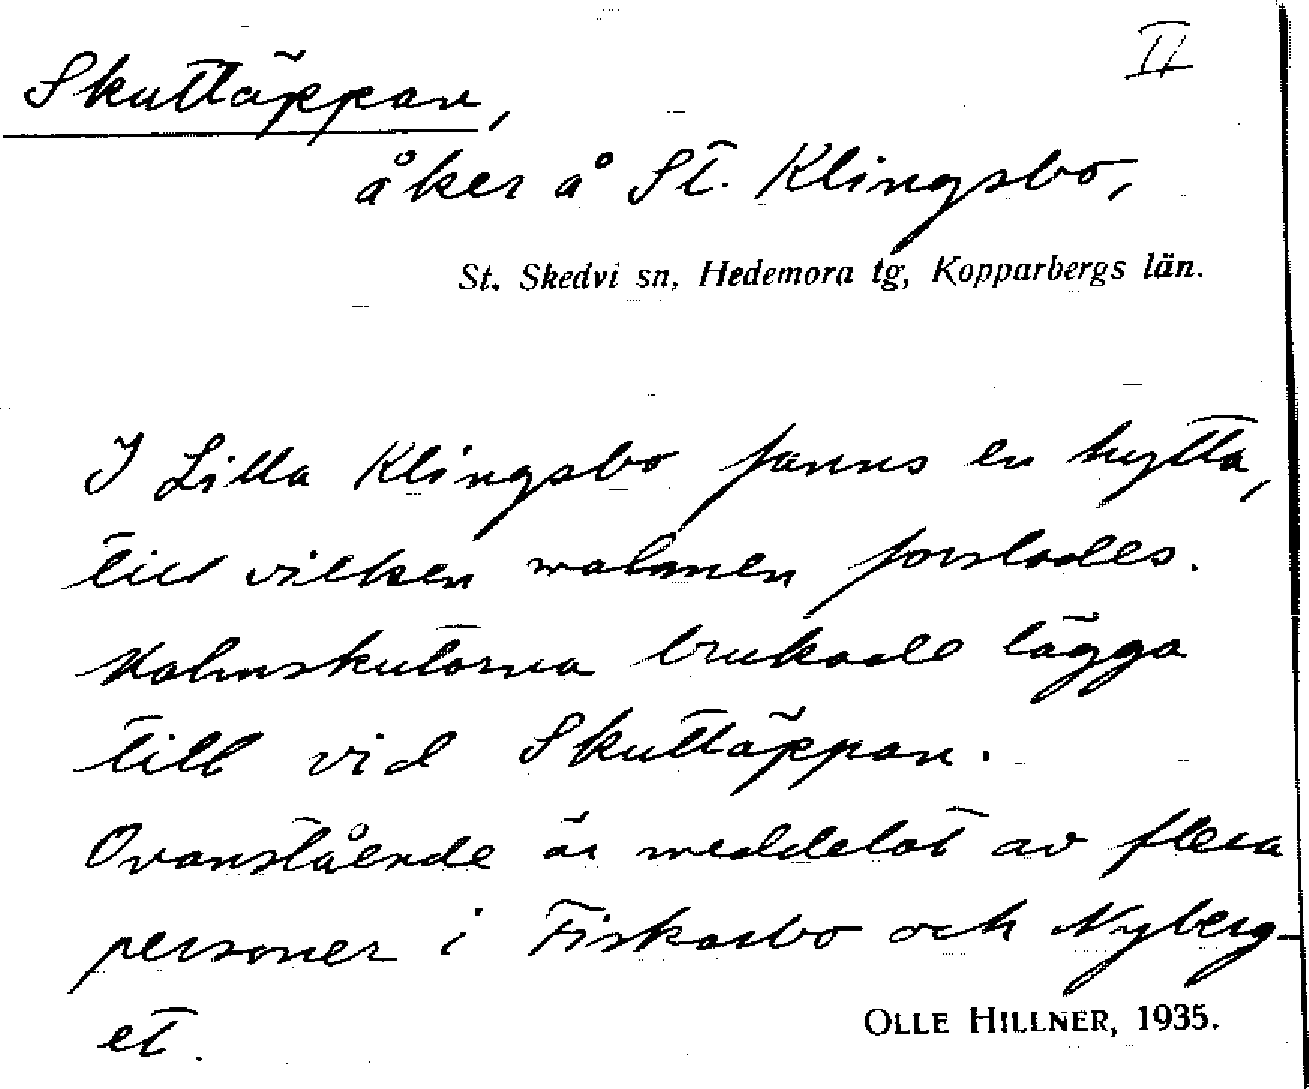 II
Skuttäppan,
åker å St. Klingsbo,
St. Skedvi sn, Hedemora tg, Kopparbergs län.
I Lilla Klingsbo fanns en hytta,
till vilken malmen forslades.
Malmskutorna brukade lägga
till vid Skuttäppan.
Ovanstående är meddelat av flera
personer i Fiskarbo och Nyberg-
et.
OLLE HILLNER, 1935.